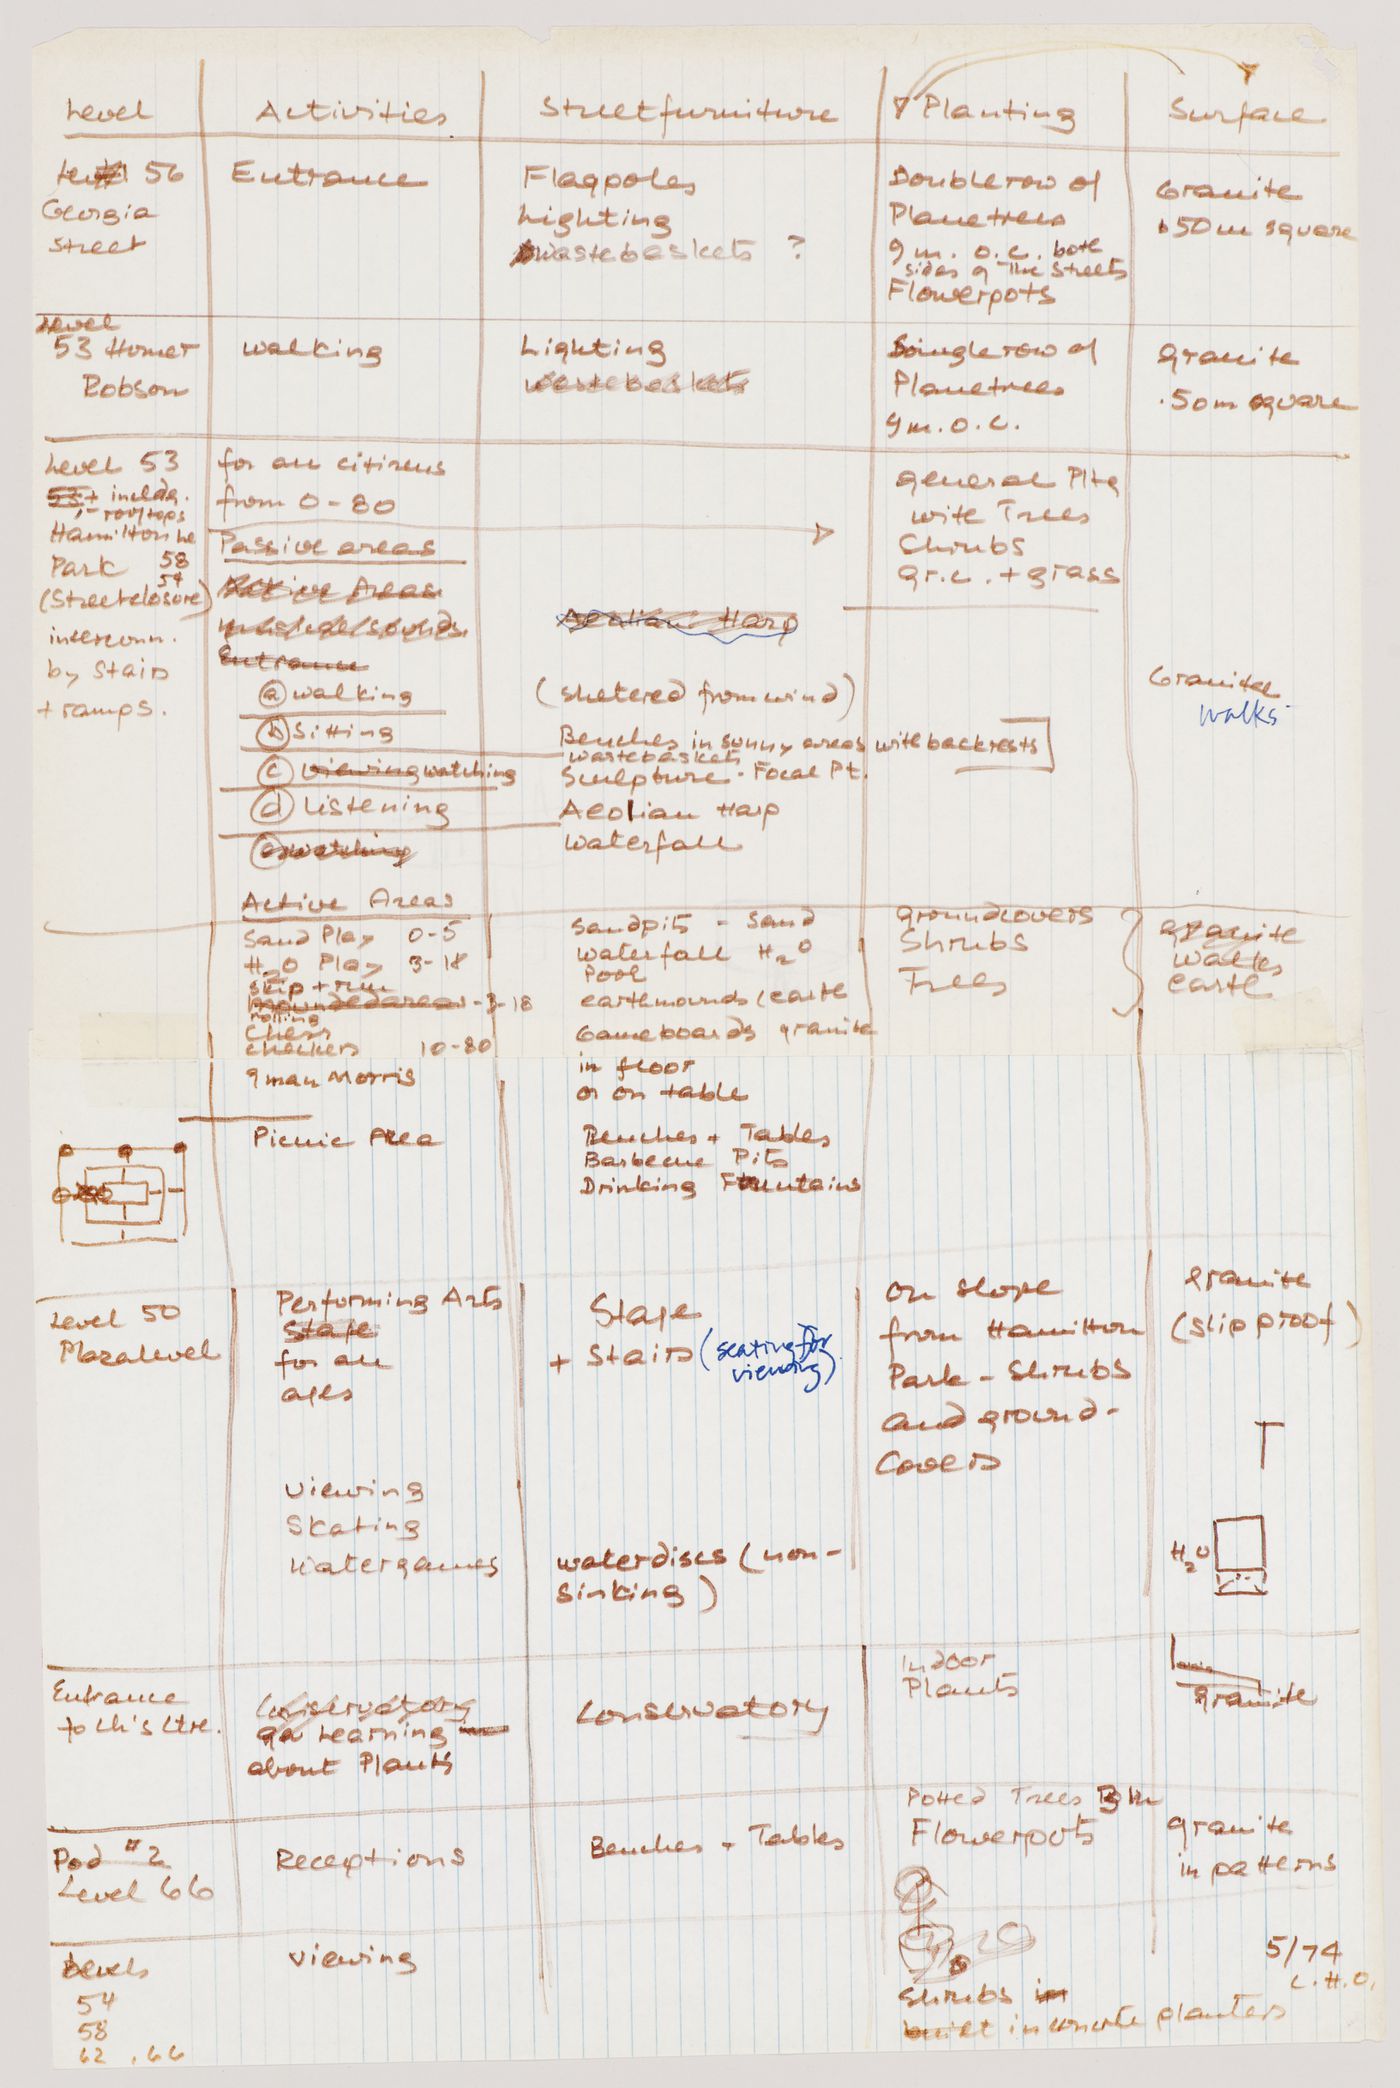 Level
Activities
Streetfurniture
Planting
Surface
Level 56
Georgia
Street
Entrance
Flagpoles
Lighting
Wastebaskets ?
Doublerow of
Planetrees
9 m. o.c. both
sides of the streets
Flowerpots
Granite
.50 m square
Level
53 Homer
Robson
walking
Lighting
Wastebaskets
Singlerow of
Planetrees
9 m. o.c.
Granite
.50 m square
Level 53
53+ includg.
rooftops
Hamilton
Park 58
54
(Streetclosure)
interconn.
by Stairs
+ ramps.
for all citizens
from 0-80
Passive areas
Active Areas
musical sounds
Entrance
(a) walking
(b) Sitting
(c) viewing watching
(d) Listening
(e) watching
Aeolian Harp
(sheltered from wind)
Benches in sunny areas with backrests
wastebaskets
Sculpture - Focal Pt.
Aeolian Harp
Waterfall
general Pltg
with Trees
Shrubs
gr.c. + grass
Granite
walks
Active Areas
Sand Play 0-5
H2O Play 3-18
skip + run
mounded areas - 3-18
rolling
Chess
checkers 10-80
9 man Morris
Sandpits - sand
Waterfall H2O
Pool
earthmounds (earth
Gameboards granite
in floor
or on table
groundcovers
Shrubs
Trees
granite
walks
earth
Picnic Area
Benches + Tables
Barbecue Pits
Drinking Fountains
Level 50
Plazalevel
Performing Arts
Stage
for all
ages
Stage
+ Stairs (seating for
viewing)
on slope
from Hamilton
Park - Shrubs
and ground-
covers
granite
(slip proof)
viewing
Skating
Watergames
waterdiscs (non-
sinking)
H2O
Entrance
to Ch's Ctre.
Conservatory
Learning
about Plants
Conservatory
Indoor
Plants
granite
Pod #2
Level 66
Receptions
Benches + Tables
Potted Trees
Flowerpots
granite
in patterns
Levels
54
58
62, 66
viewing
Shrubs in
built in concrete planters
5/74
C.H.O.